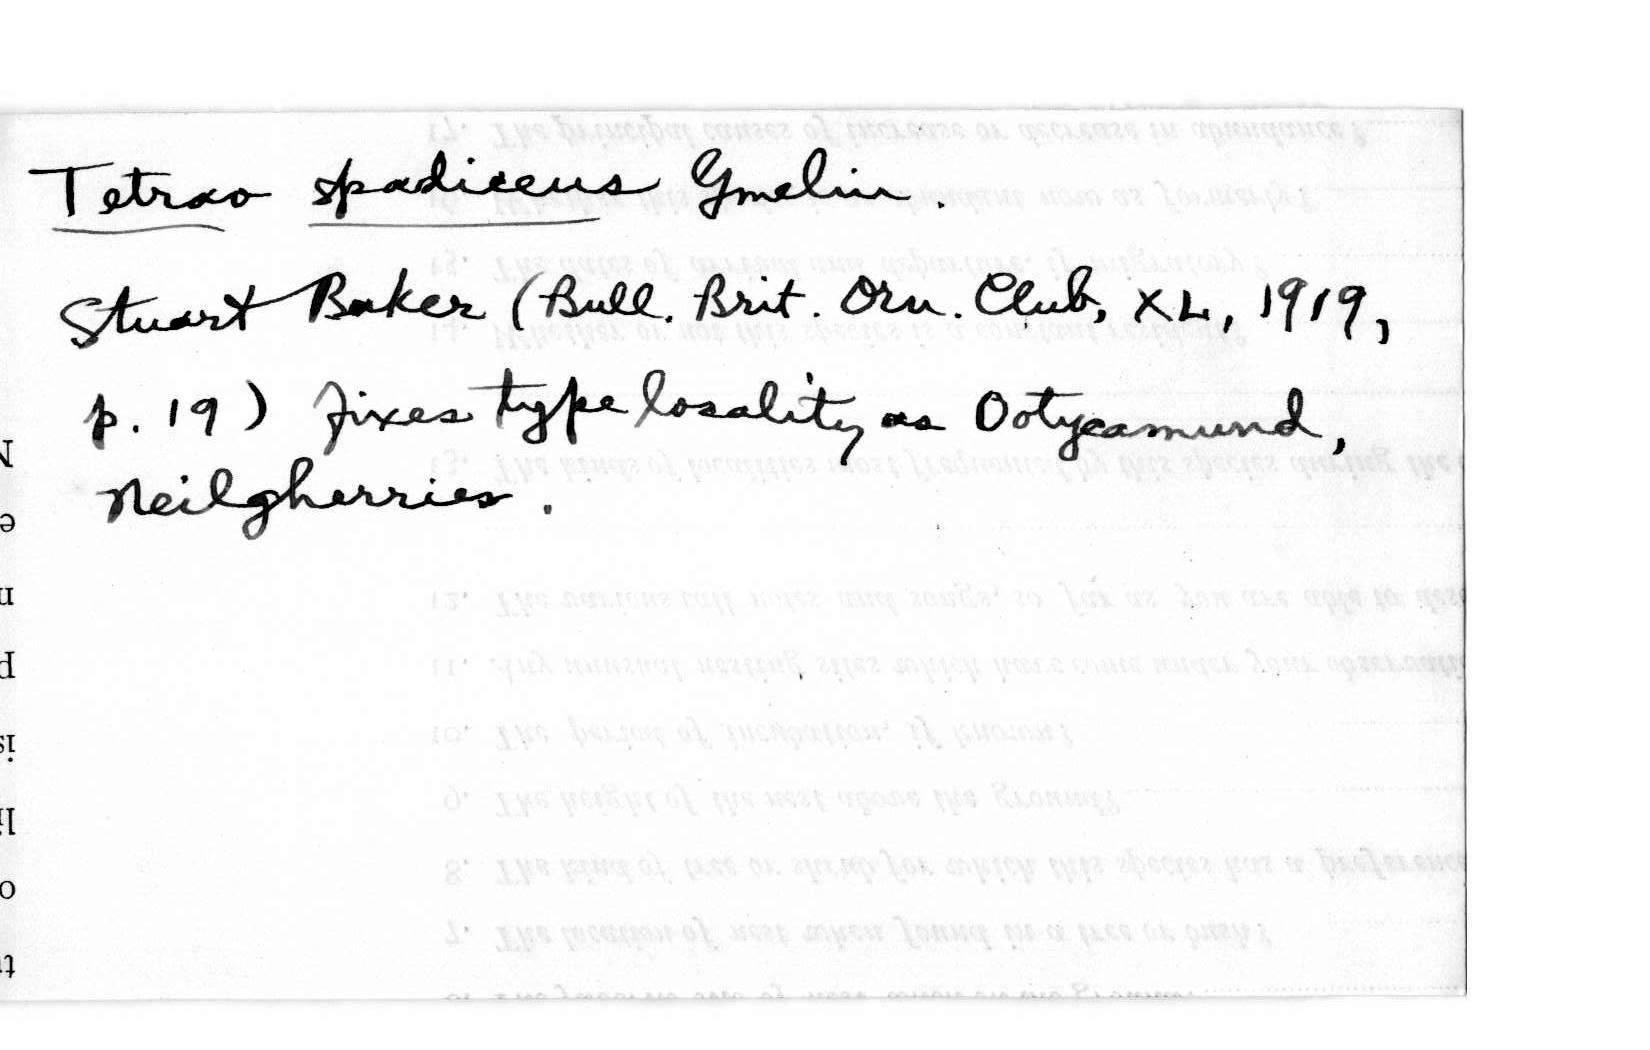 Tetrao spadiceus Gmelin.
Stuart Baker (Bull. Brit. Orn. Club, XL, 1919,
p. 19) fixes type locality as Ootycamund,
Neilgherries.